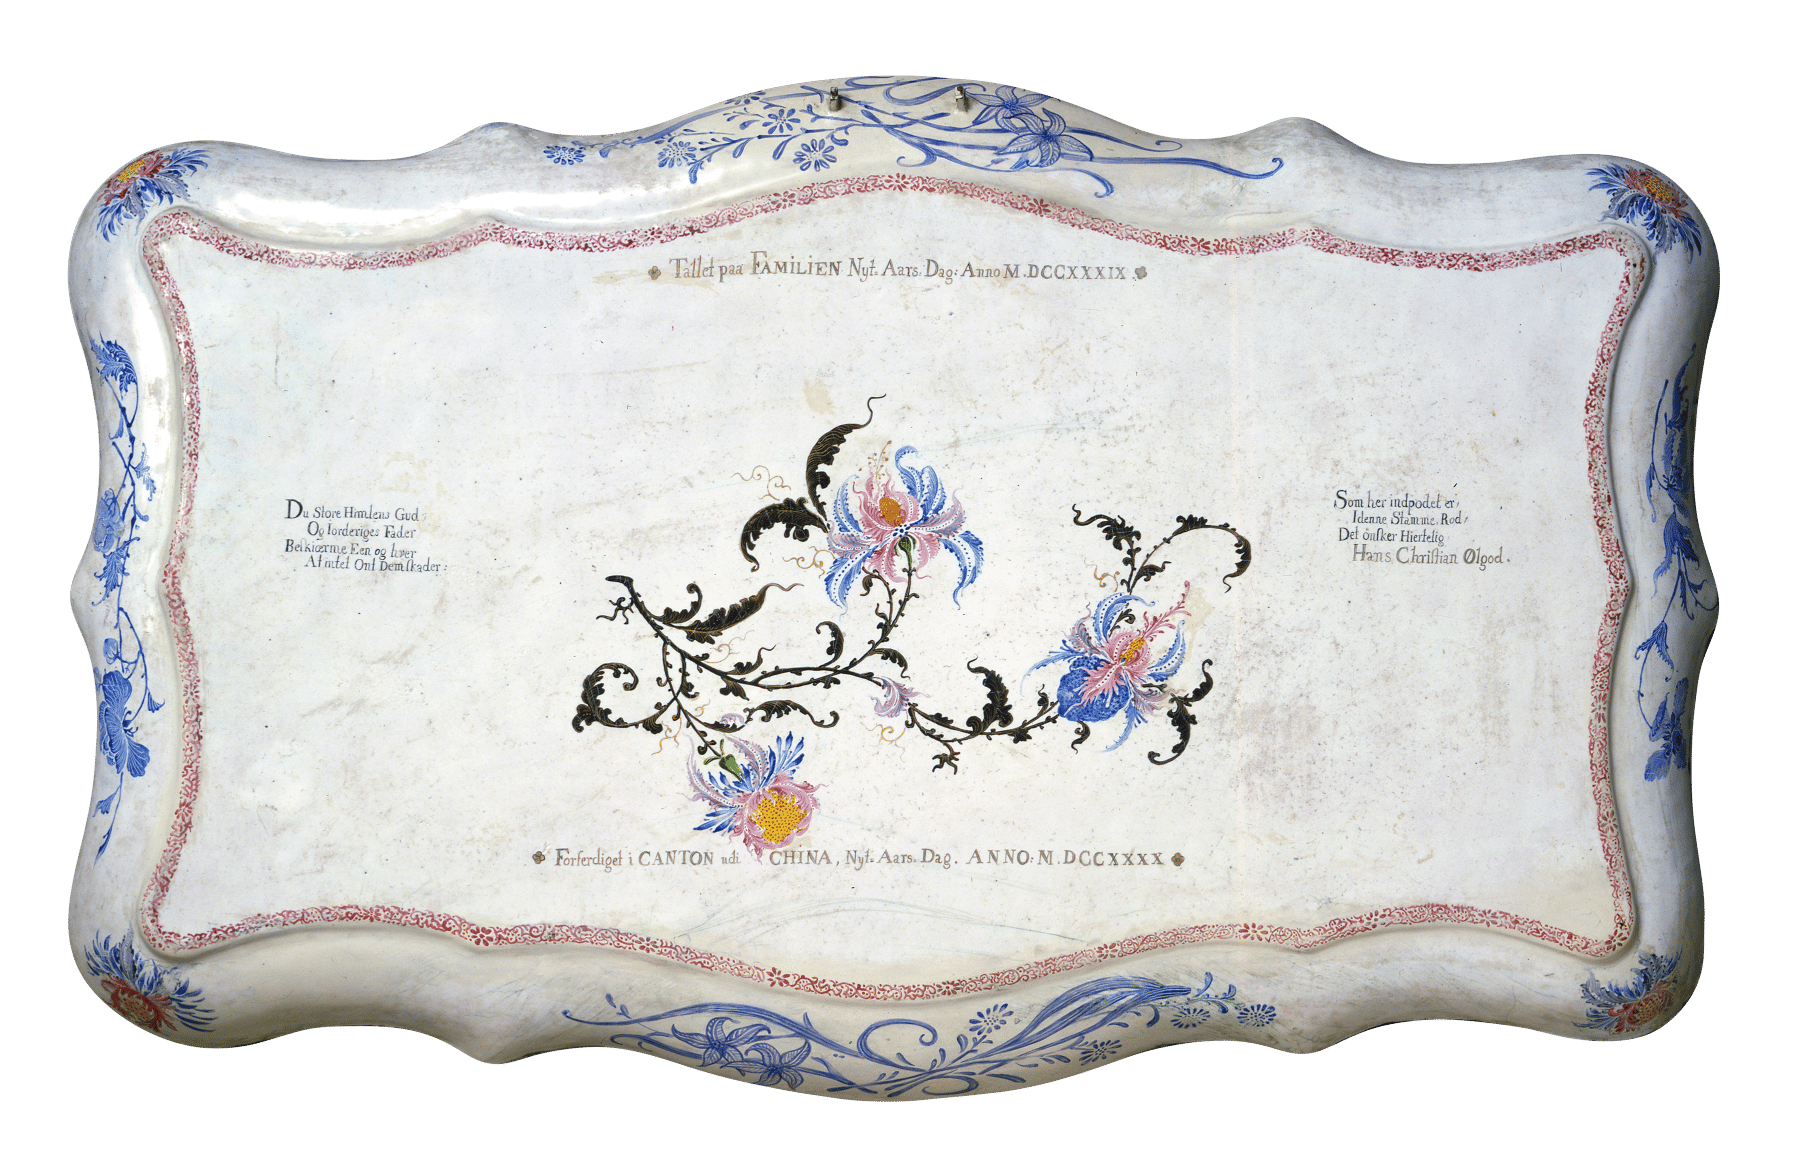 Tallet paa FAMILIEN Nyt. Aars. Dag: Anno M.DCCXXXIX.
Du Store Himlens Gud,
Og Jorderiges Fader
Beskiærme Een og hver
At intet Ont Dem skader:
Som her indpodet er,
I denne Stamme. Rod,
Det önsker Hiertelig
Hans Christian Ølgod.
Forferdiget i CANTON udi CHINA, Nyt. Aars. Dag. ANNO: M.DCCXXXX